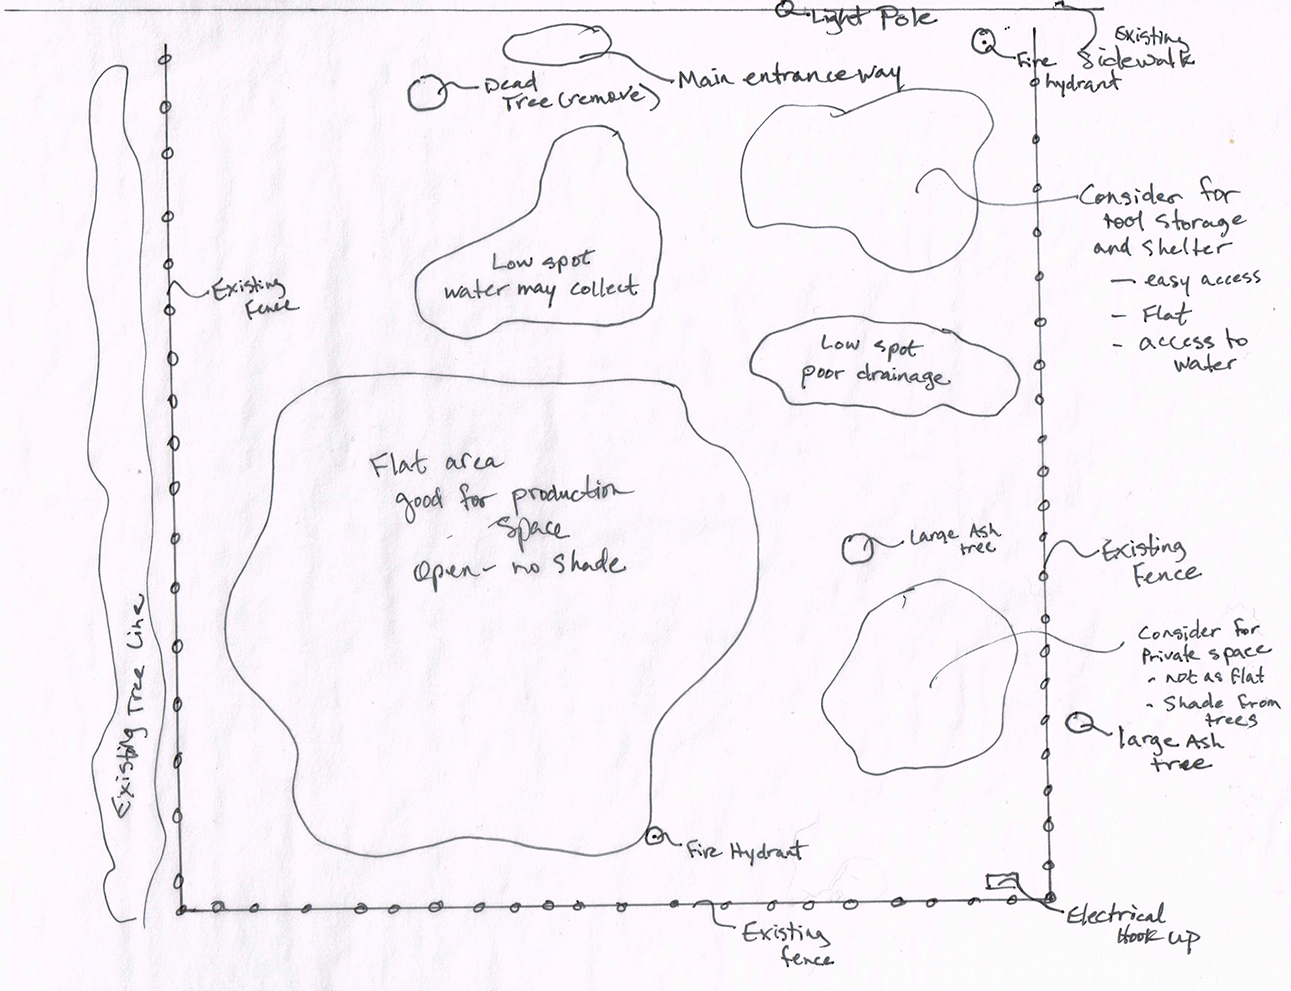 Light Pole
Existing
Sidewalk
Fire
hydrant
Main entranceway
Dead
Tree (remove)
Consider for
tool storage
and Shelter
— easy access
- Flat
- access to
water
Low spot
water may collect
Existing
Fence
Low spot
poor drainage
Flat area
good for production
space
Open - no Shade
Large Ash
tree
Existing
Fence
Consider for
Private space
- not as Flat
- Shade from
trees
large Ash
tree
Existing Tree Line
Fire Hydrant
Electrical
Hook up
Existing
fence